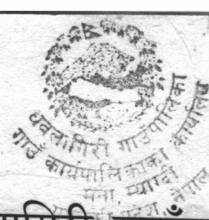 धवलागिरी गाउँपालिका
गाउँ कार्यपालिकाको कार्यालय
मुना, म्याग्दी
प्रदेश, नेपाल